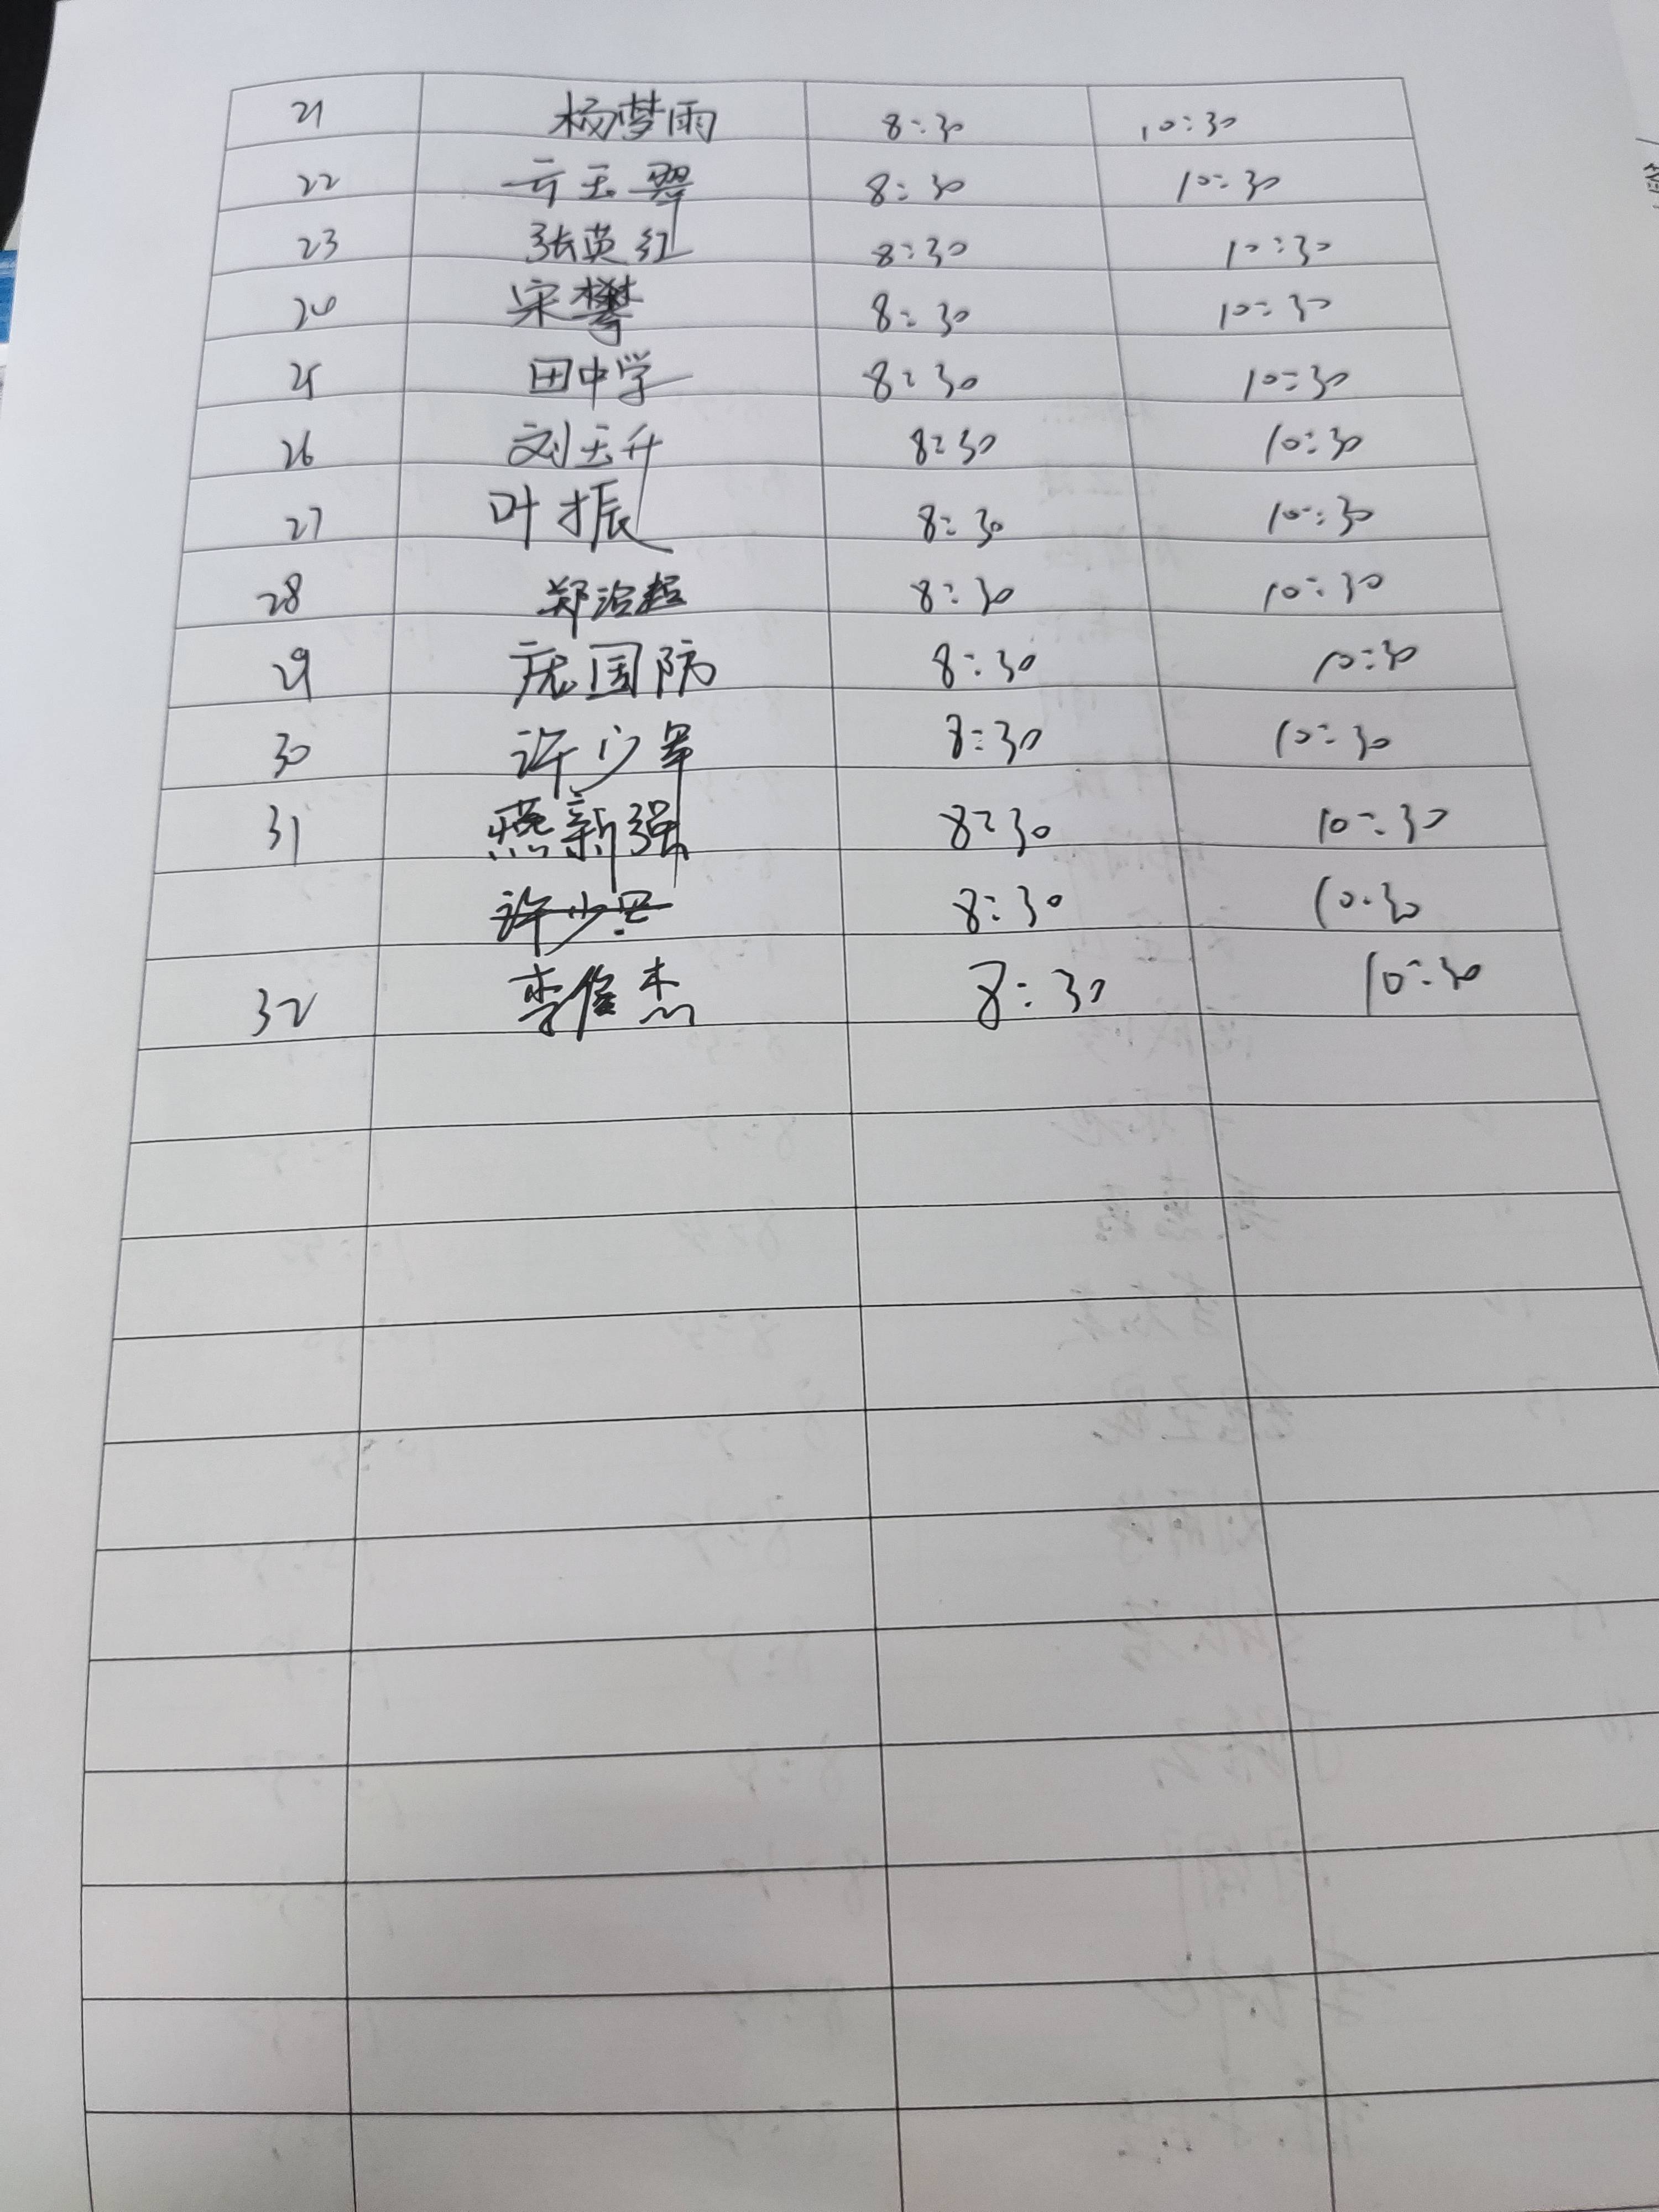 21 杨梦雨 8:30 10:30
22 亓玉翠 8:30 10:30
23 张英红 8:30 10:30
24 宋攀 8:30 10:30
25 田中学 8:30 10:30
26 刘玉升 8:30 10:30
27 叶振 8:30 10:30
28 郑治超 8:30 10:30
29 庞国防 8:30 10:30
30 许少军 8:30 10:30
31 燕新强 8:30 10:30
许少 8:30 10:30
32 李俊杰 8:30 10:30